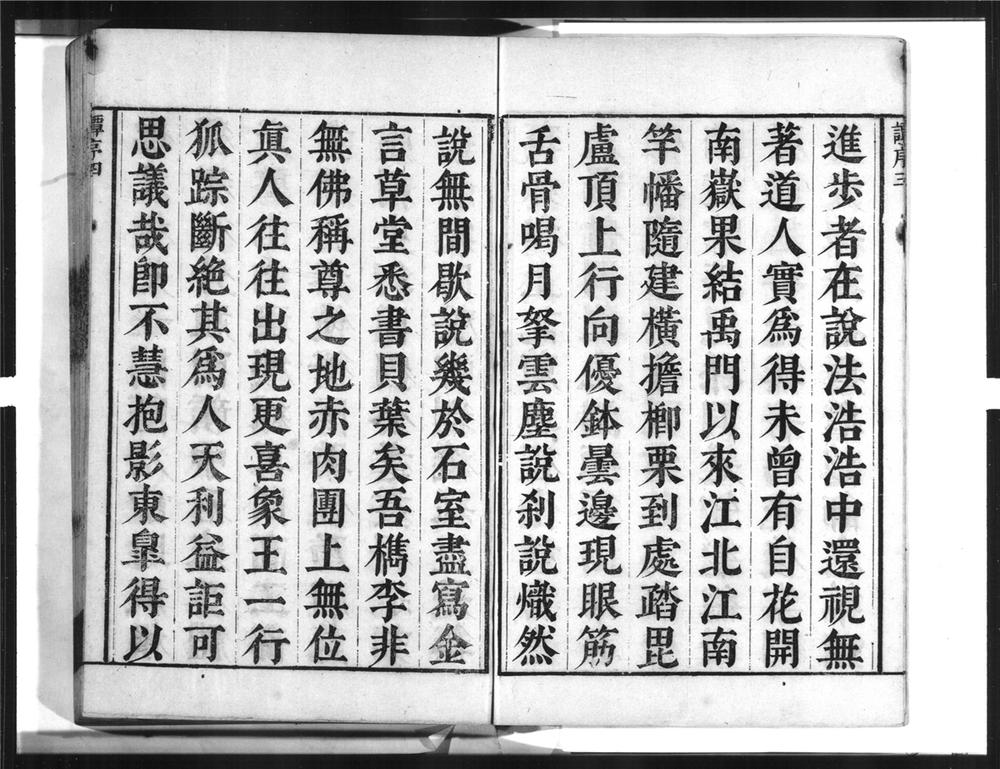 進步者在說法浩浩中還視無
著道人實爲得未曾有自花開
南嶽果結禹門以來江北江南
竿幡隨建橫擔櫛栗到處踏毘
盧頂上行向優鉢曇邊現眼筋
舌骨喝月拏雲塵說刹說熾然
說無間歇說幾於石室盡寫金
言草堂悉書貝葉矣吾檇李非
無佛稱尊之地赤肉團上無位
眞人往往出現更喜象王一行
狐踪斷絕其爲人天利益詎可
思議哉卽不慧抱影東臯得以
序三
譚序四